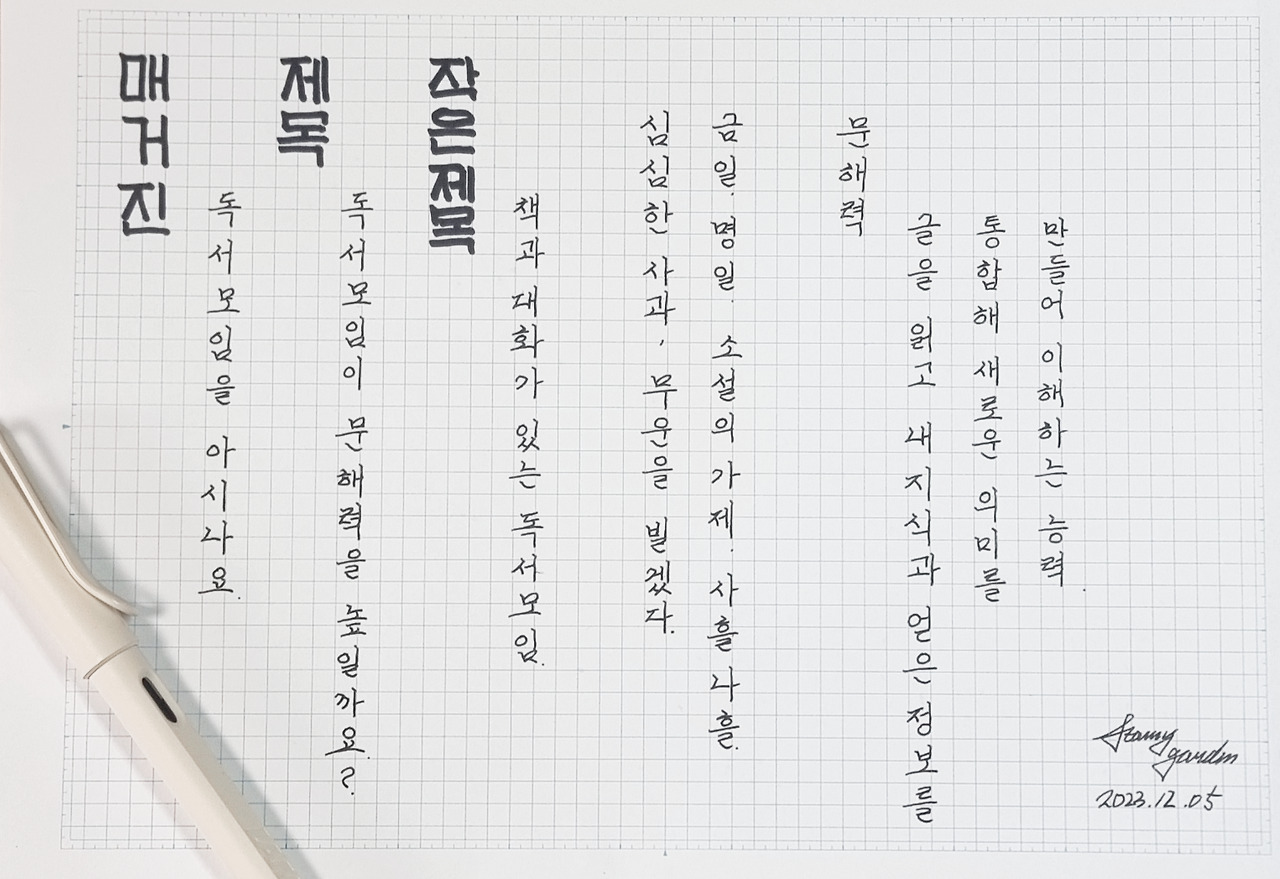 매거진
독서모임을 아시나요.
제목
독서모임이 문해력을 높일까요?
작은제목
책과 대화가 있는 독서모임.
심심한 사과, 무운을 빌겠다.
금일. 명일. 소설의 가제. 사흘나흘.
문해력
글을 읽고 내 지식과 얻은 정보를
통합해 새로운 의미를
만들어 이해하는 능력.
Starry
garden
2023.12.05